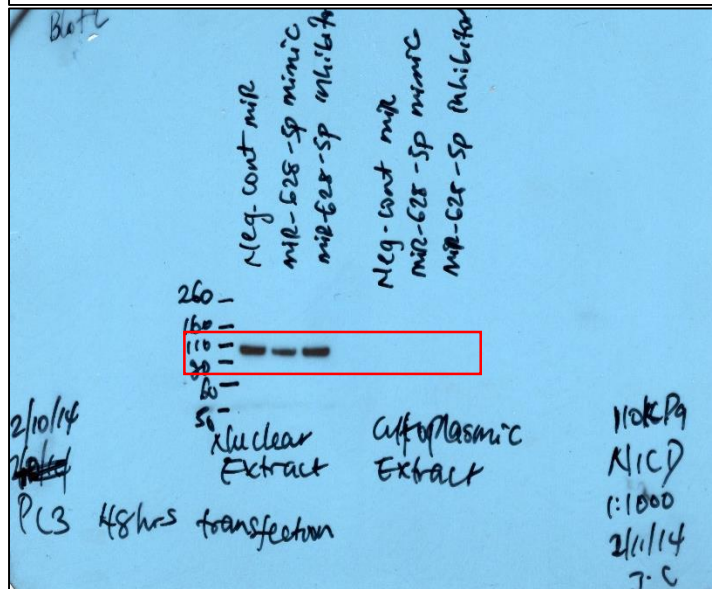 Blot 2
Neg-cont miR
miR-628-5p mimic
miR-628-5p inhibitor
Neg-cont miR
miR-628-5p mimic
miR-628-5p inhibitor
260
160
110
80
60
50
2/10/14
Nuclear
Extract
Cytoplasmic
Extract
PC3 48hrs transfection
110KDa
NICD
1:1000
2/11/14
J.C